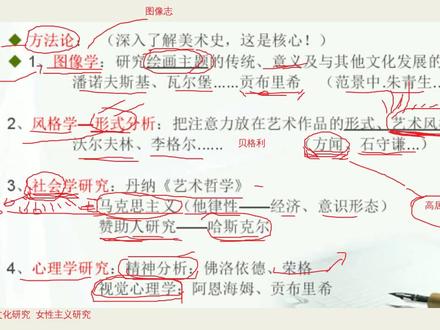 图像志
方法论：（深入了解美术史，这是核心！）
1、图像学：研究绘画主题的传统、意义及与其他文化发展的
潘诺夫斯基、瓦尔堡……贡布里希 （范景中、朱青生…
2、风格学—形式分析：把注意力放在艺术作品的形式、艺术风
沃尔夫林、李格尔…… 贝格利 （方闻、石守谦…）
3、社会学研究：丹纳《艺术哲学》
马克思主义（他律性——经济、意识形态）
赞助人研究——哈斯克尔
高居
4、心理学研究：精神分析：佛洛依德、荣格
视觉心理学：阿恩海姆、贡布里希
文化研究 女性主义研究